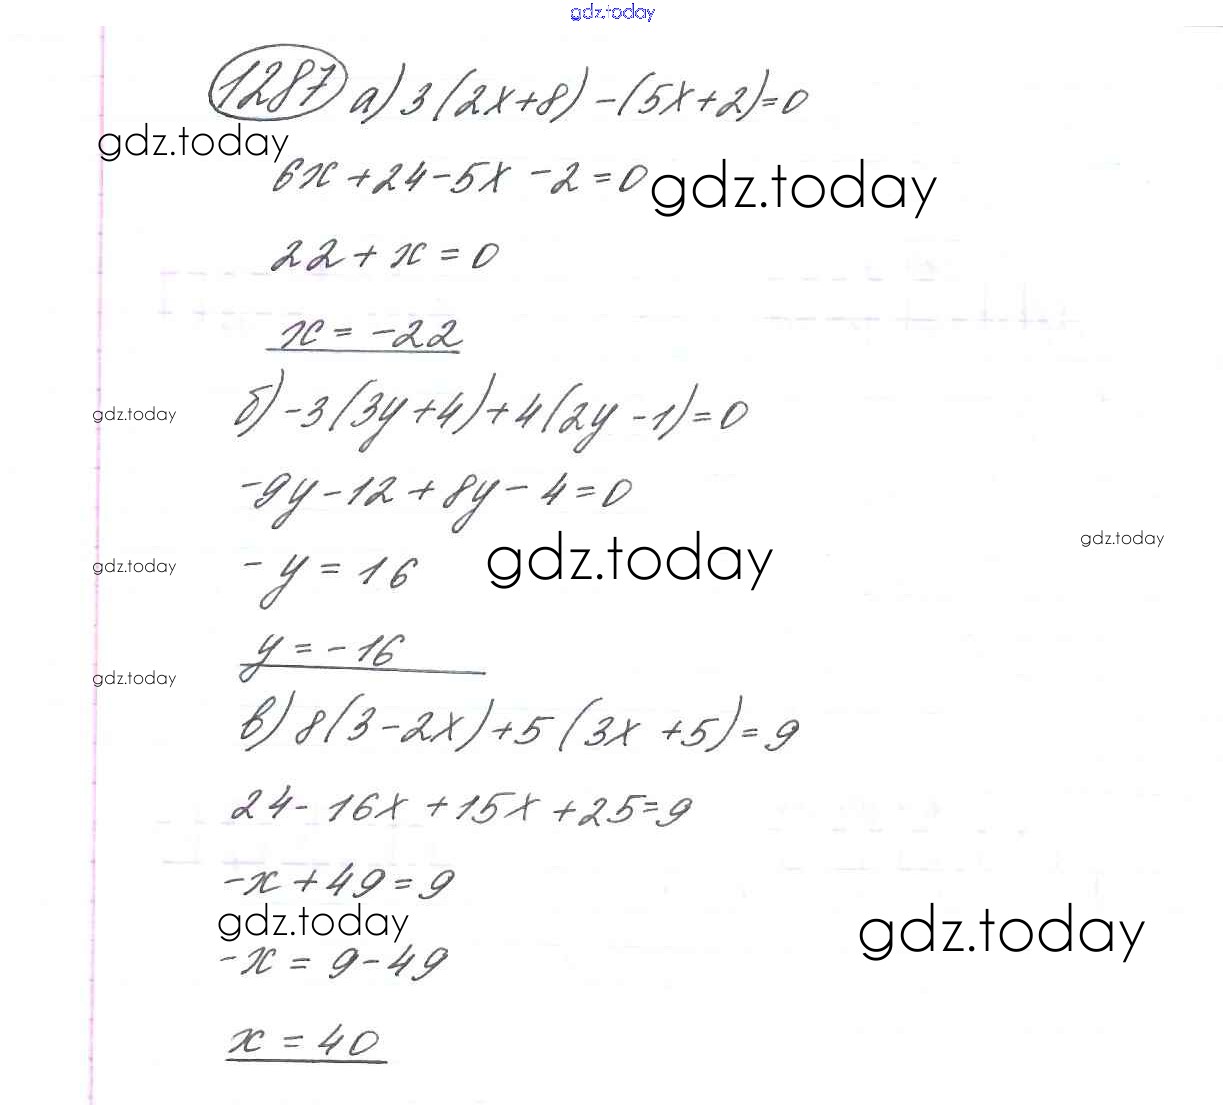 gdz.today
1287 а) 3(2x+8)-(5x+2)=0
gdz.today
6x+24-5x-2=0
gdz.today
22+x=0
x=-22
б) -3(3y+4)+4(2y-1)=0
gdz.today
-9y-12+8y-4=0
gdz.today
gdz.today
-y=16
gdz.today
y=-16
gdz.today
в) 8(3-2x)+5(3x+5)=9
24-16x+15x+25=9
-x+49=9
gdz.today
gdz.today
-x=9-49
x=40